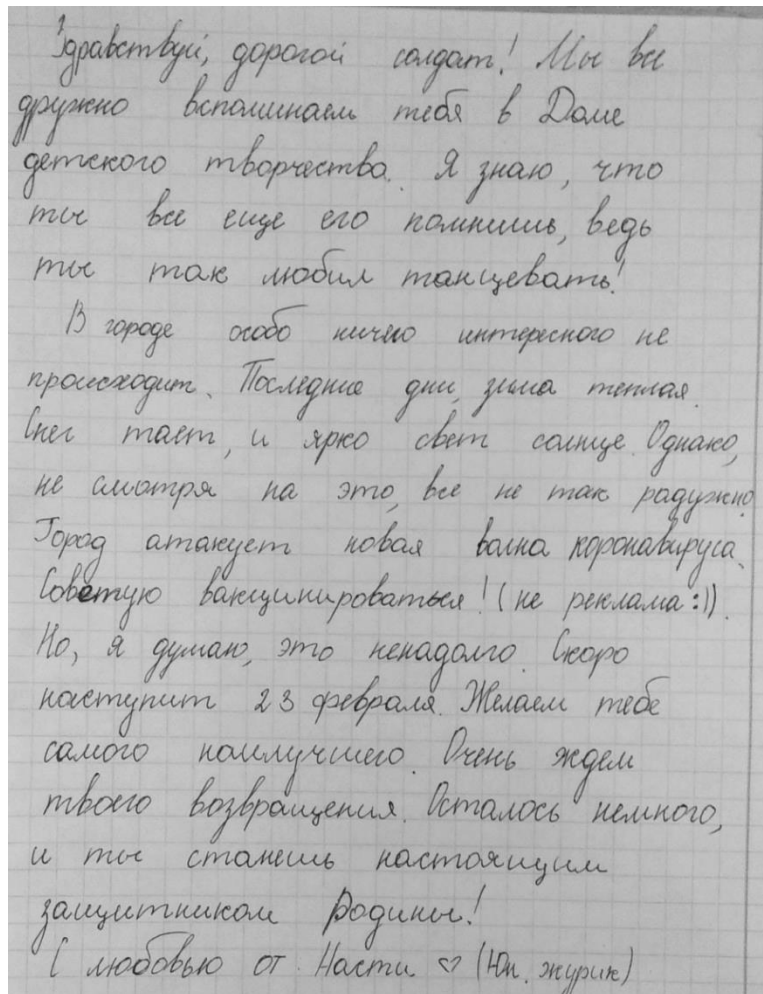 Здравствуй, дорогой солдат! Мы все
дружно вспоминаем тебя в Доме
детского творчества. Я знаю, что
ты все еще его помнишь, ведь
ты так любил танцевать!
В городе особо ничего интересного не
происходит. Последние дни, зима теплая.
Снег тает, и ярко свет солнце. Однако,
не смотря на это, все не так радужно.
Город атакует новая волна коронавируса.
Советую вакцинироваться! (не реклама :)).
Но, я думаю, это ненадолго. Скоро
наступит 23 февраля. Желаем тебе
самого наилучшего. Очень ждем
твоего возвращения. Осталось немного,
и ты станешь настоящим
защитником Родины!
С любовью от Насти ♡ (Юн. журик)